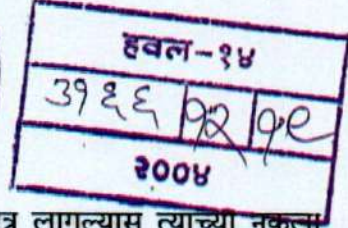 हवल-१४
३१६६ १२ १९
२००४
त्र लागल्यास त्याच्या नकला